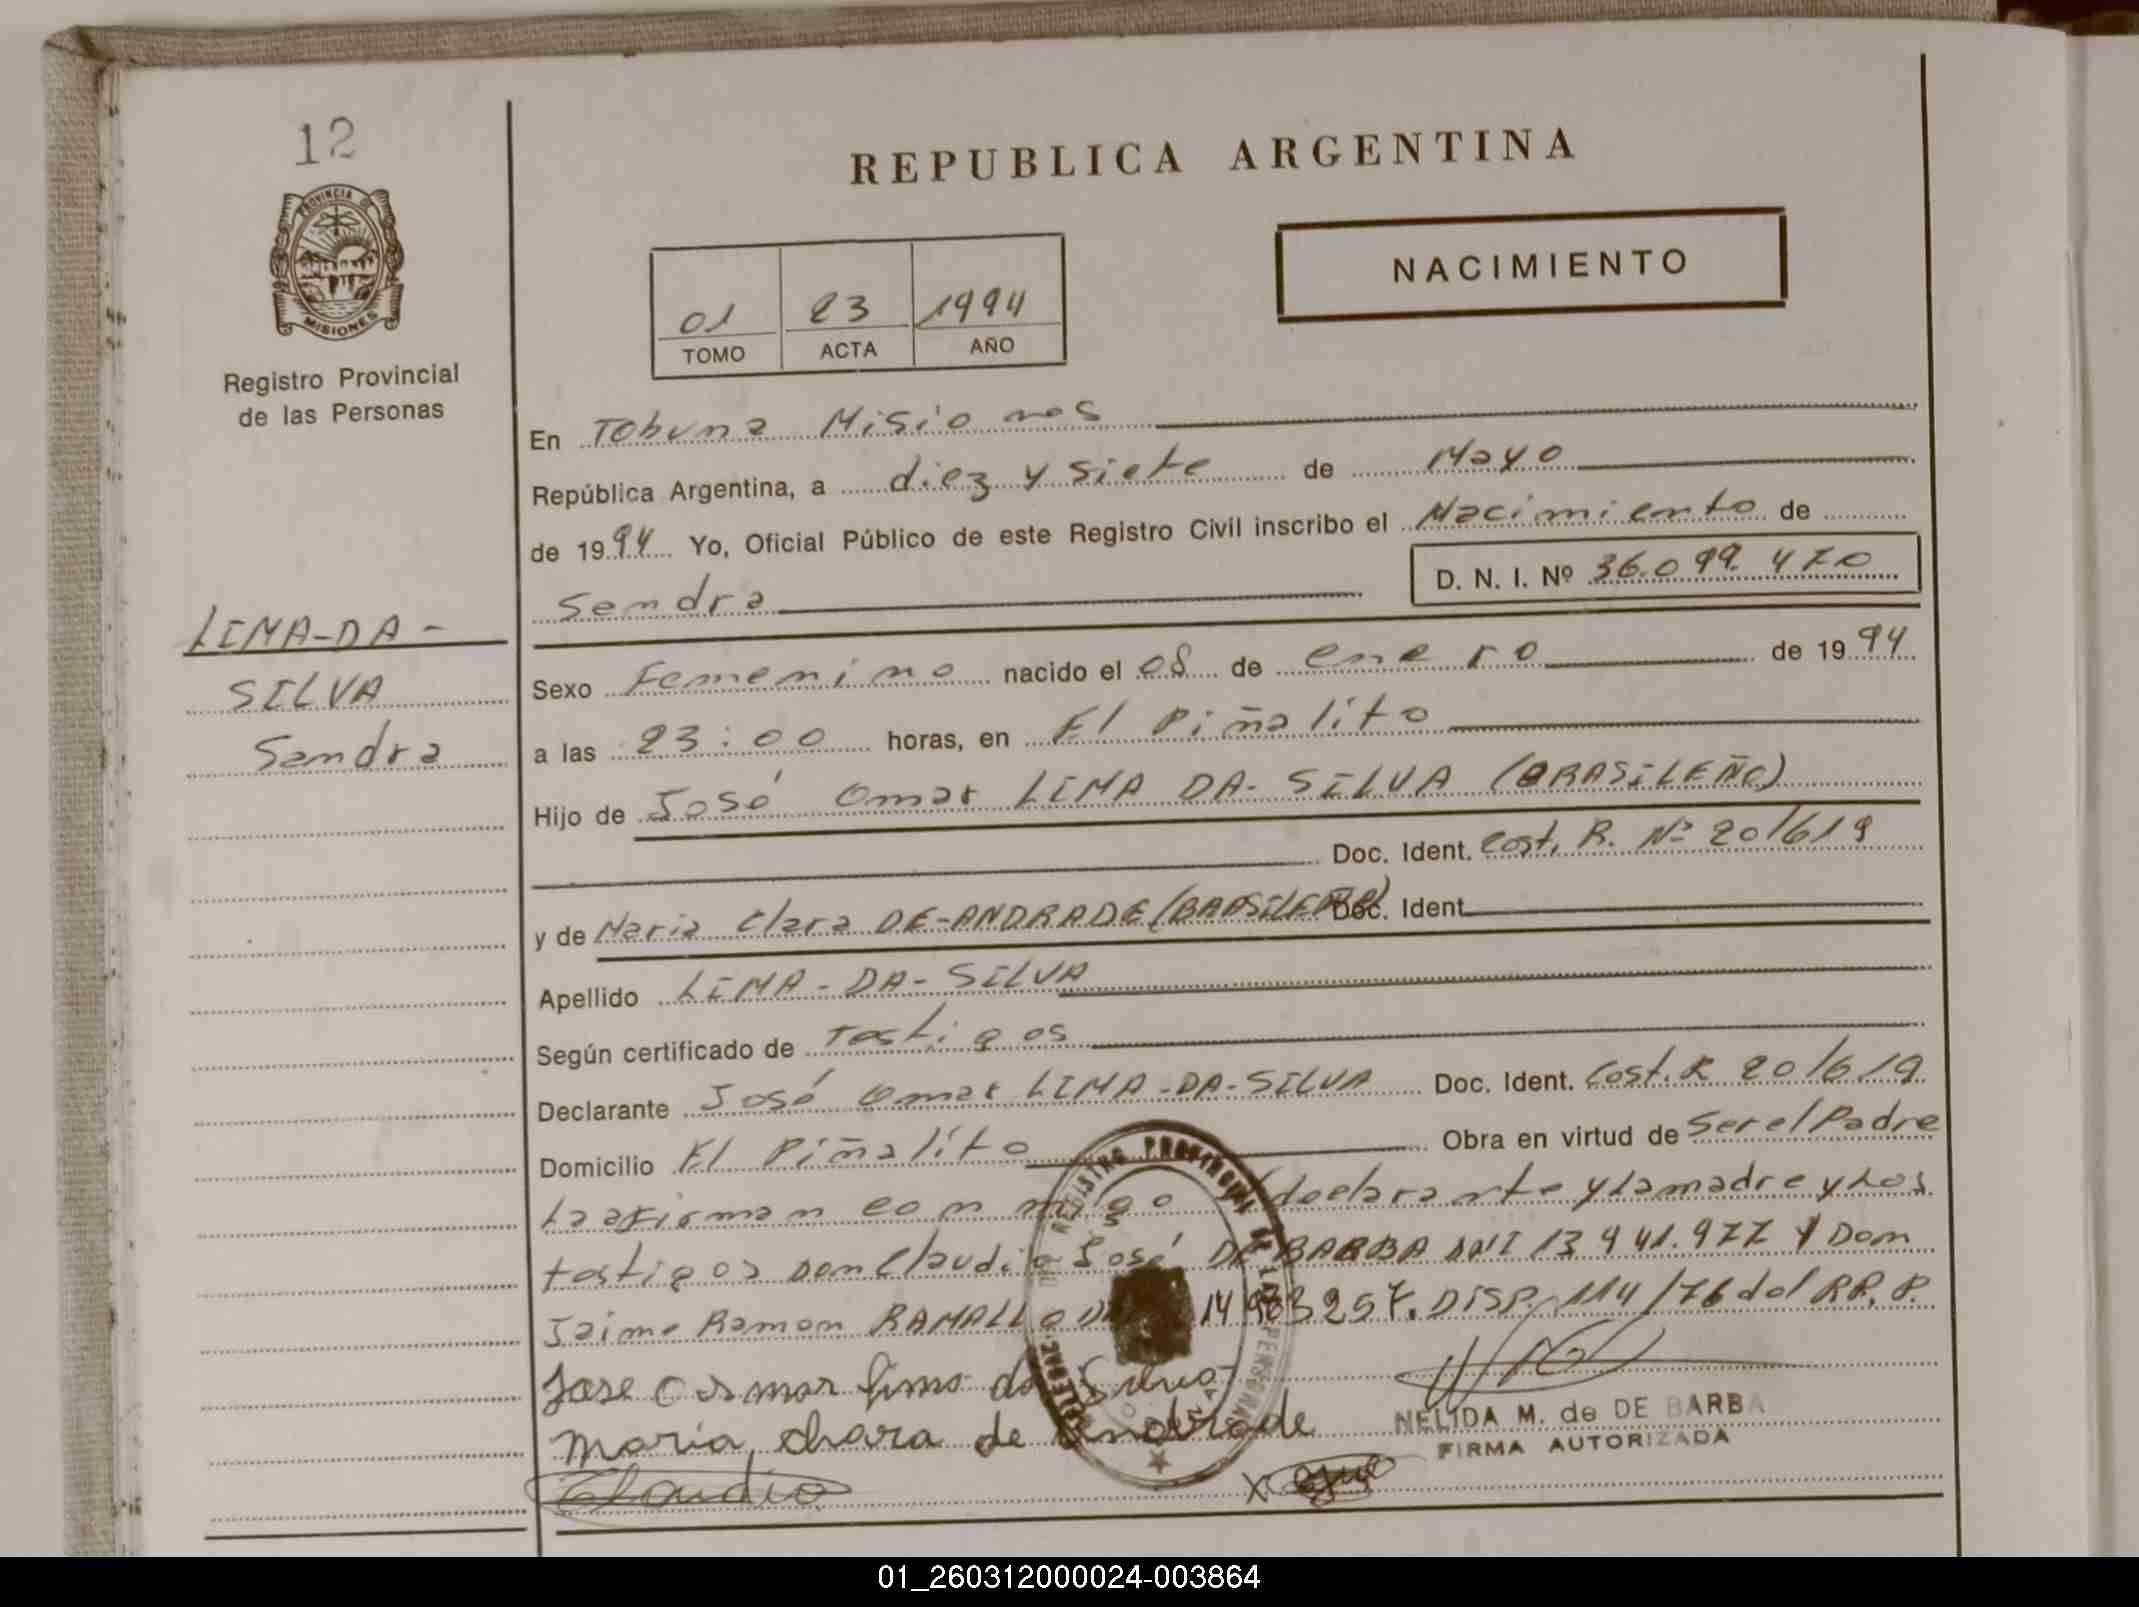 12
PROVINCIA DE
MISIONES
Registro Provincial
de las Personas
LIMA-DA-
SILVA
Sandra
REPUBLICA ARGENTINA
NACIMIENTO
01 23 1994
TOMO ACTA AÑO
En Tobuna Misiones
República Argentina, a diez y siete de Mayo
de 1994 Yo, Oficial Público de este Registro Civil inscribo el Nacimiento de
Sandra D. N. I. Nº 36.099.470
Sexo Femenino nacido el 08 de enero de 1994
a las 23:00 horas, en El Piñalito
Hijo de José Omar LIMA DA-SILVA (BRASILEÑO)
Doc. Ident. Cost. R. Nº 20/619
y de Maria Clara DE-ANDRADE (BRASILEÑA) Doc. Ident.
Apellido LIMA-DA-SILVA
Según certificado de Testigos
Declarante José Omar LIMA-DA-SILVA Doc. Ident. Cost. R 20/619
Domicilio El Piñalito Obra en virtud de Ser el Padre
La afirman conmigo declarante y la madre y Los
testigos Don Claudio José DE BARBA DNI 13 941.977 Y Don
Jaime Ramon RAMALLO 14 903 257. DISP. 114/76 del RP. P.
Jose Osmar Lima da Silva
Maria Chara de Andrade
NELIDA M. de DE BARBA
FIRMA AUTORIZADA
Claudio
REGISTRO PROVINCIAL DE LAS PERSONAS
01_260312000024-003864